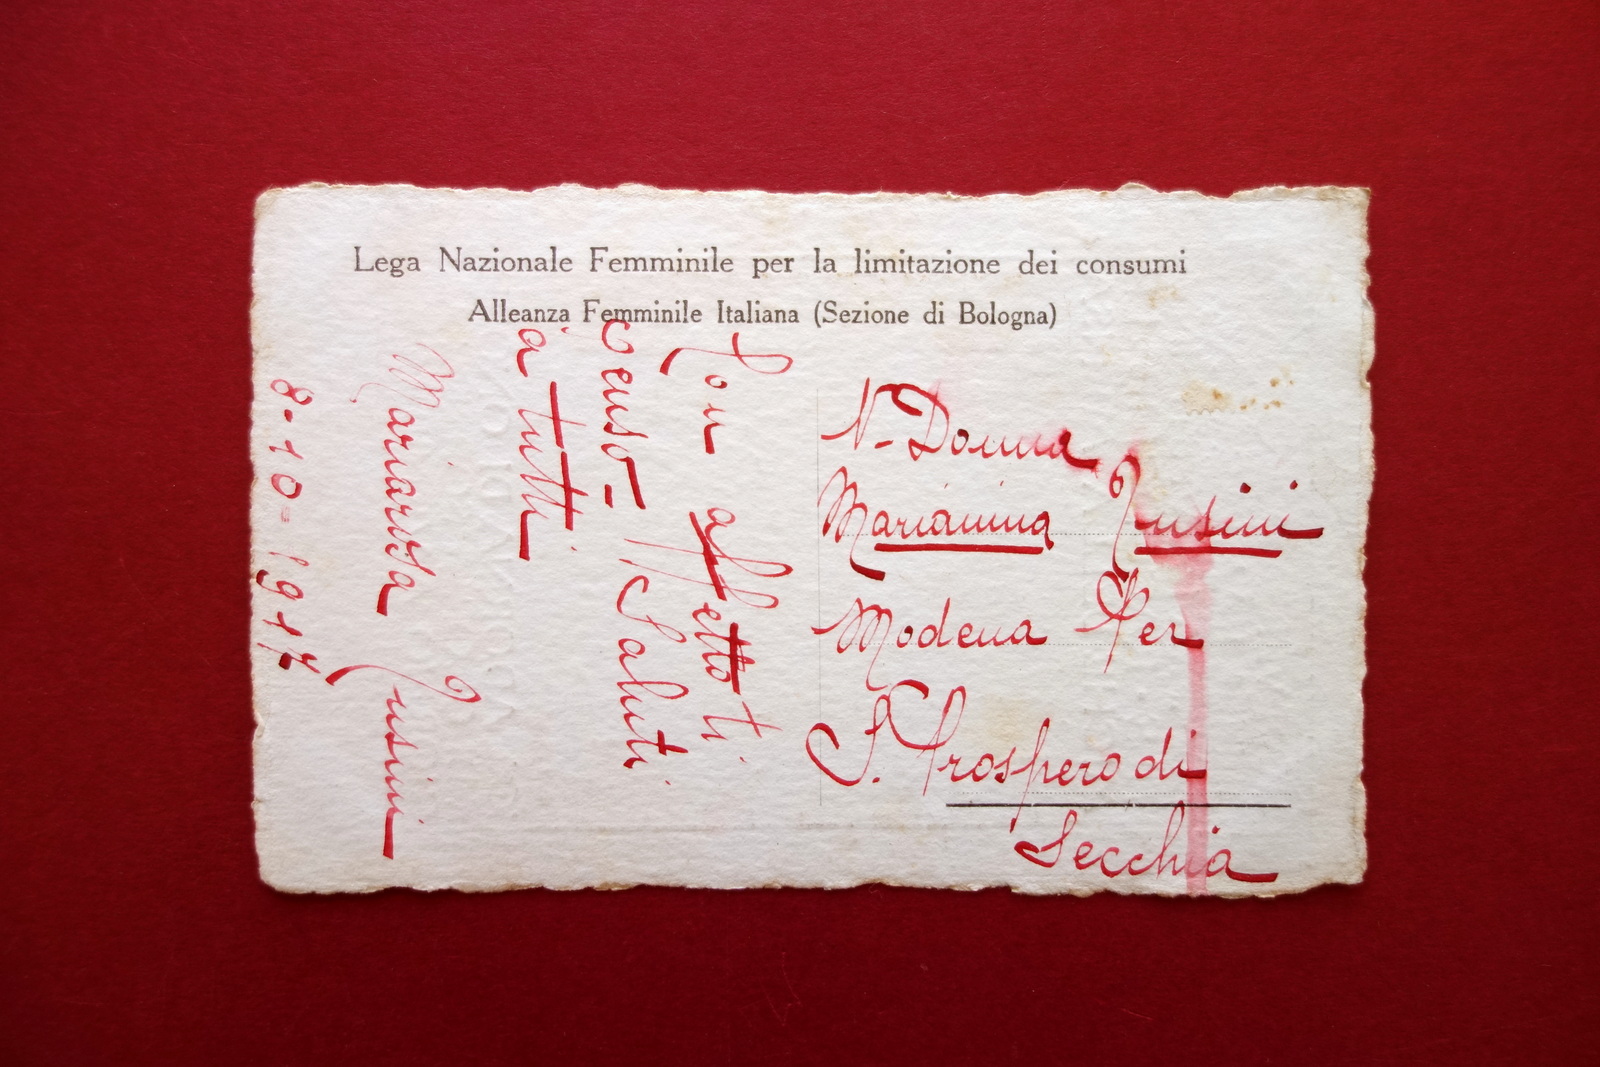 Lega Nazionale Femminile per la limitazione dei consumi
Alleanza Femminile Italiana (Sezione di Bologna)
Con affetto ti
penso - Saluti
a tutti
Mariarosa Jusini
8-10-1917
N. Donna
Marianina Jusini
Modena Per
S. Prospero di
Secchia